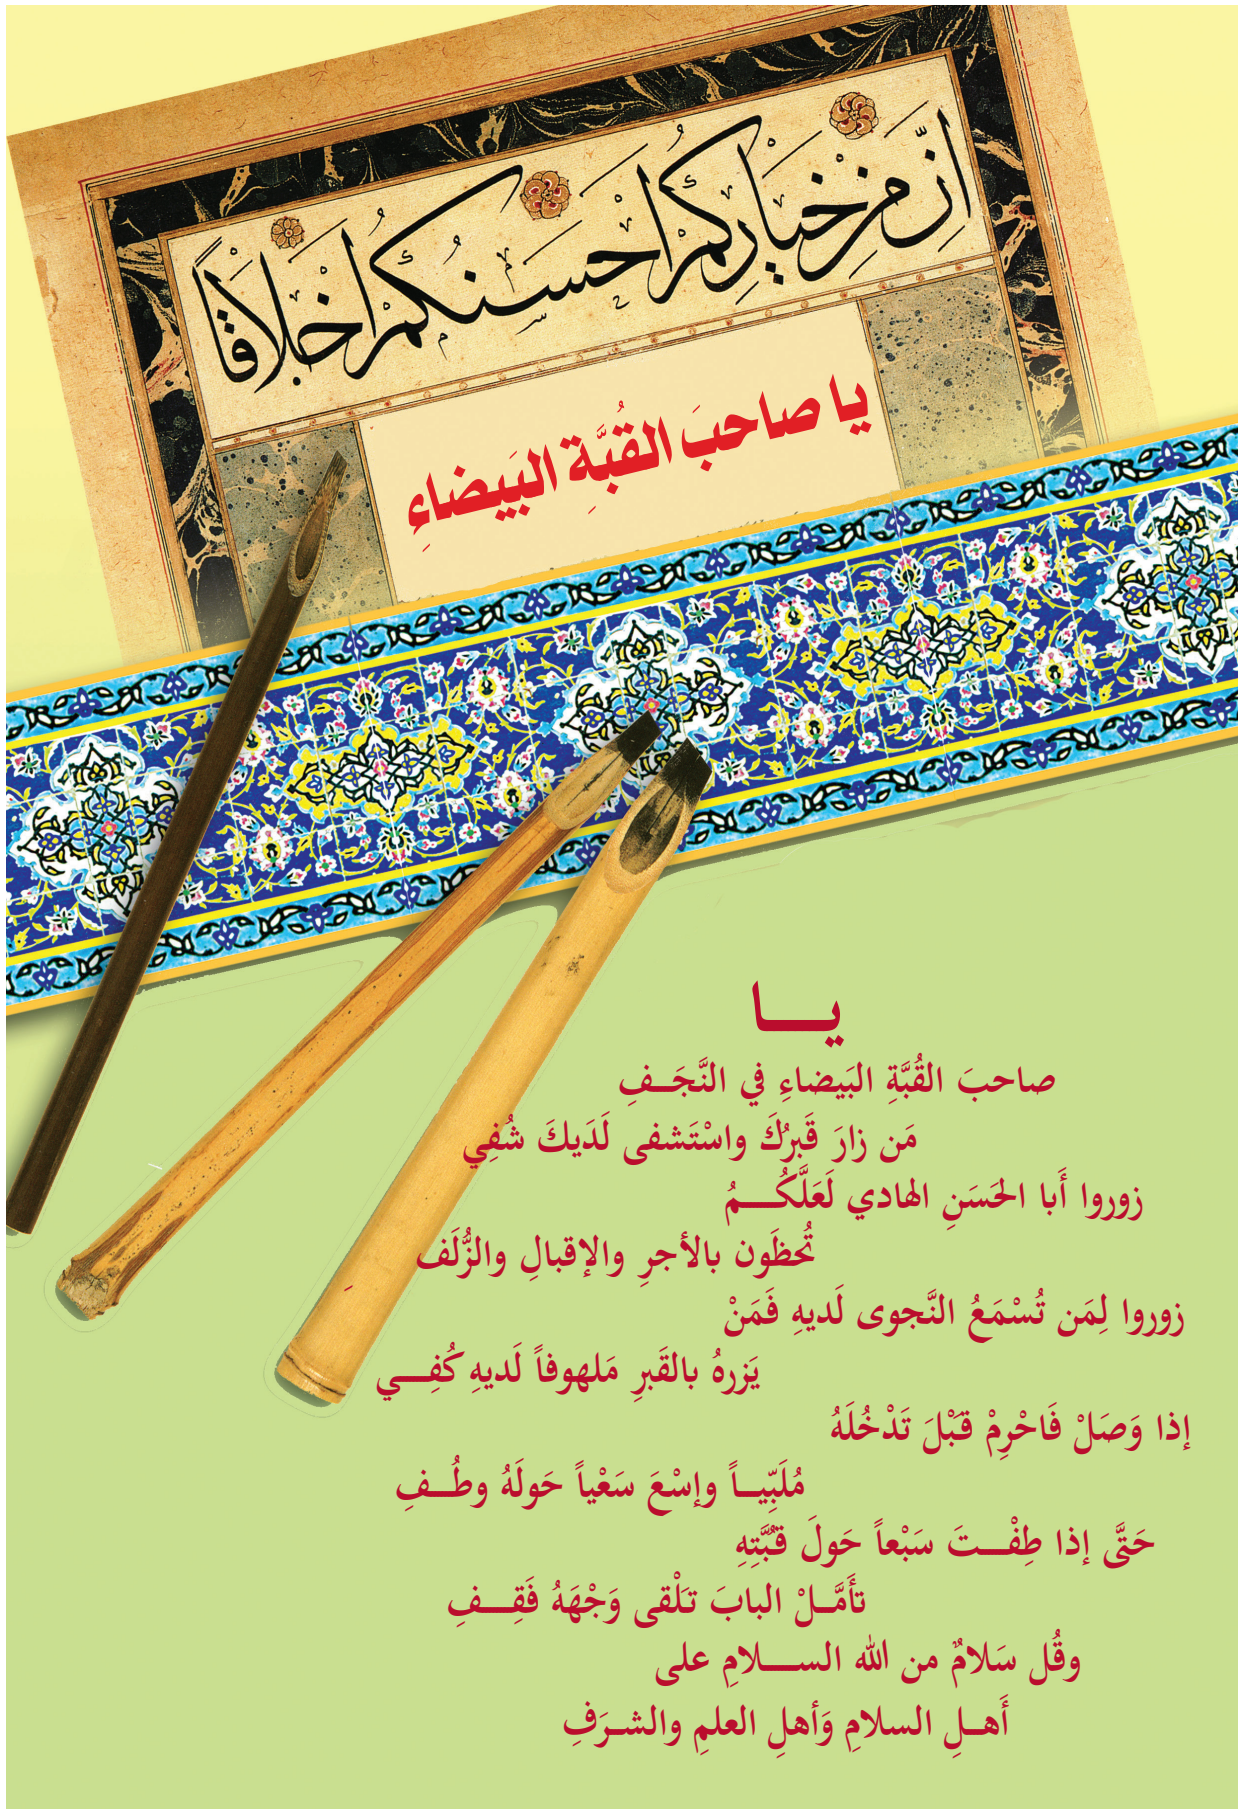 اِنَّ مِنْ خِيَارِكُمْ اَحْسَنُكُمْ اَخْلَاقًا
يا صاحبَ القُبَّةِ البَيضاءِ
يـــا
صاحبَ القُبَّةِ البَيضاءِ في النَّجَــفِ
مَن زارَ قَبرُكَ واسْتَشفى لَدَيكَ شُفِي
زوروا أَبا الحَسَنِ الهادي لَعَلَّكُـــمُ
تُحظَون بالأجرِ والإقبالِ والزُّلَف
زوروا لِمَن تُسْمَعُ النَّجوى لَديهِ فَمَنْ
يَزرهُ بالقَبرِ مَلهوفاً لَديهِ كُفِــي
إذا وَصَلْ فَاحْرِمْ قَبْلَ تَدْخُلَهُ
مُلَبِّيــاً وإسْعَ سَعْياً حَولَهُ وطُــفِ
حَتَّى إذا طِفْــتَ سَبْعاً حَولَ قُبَّتِهِ
تأَمَّــلْ البابَ تَلْقى وَجْهَهُ فَقِــفِ
وقُل سَلامٌ من الله الســـلامِ على
أَهــلِ السلامِ وَأهلِ العلمِ والشـرَفِ